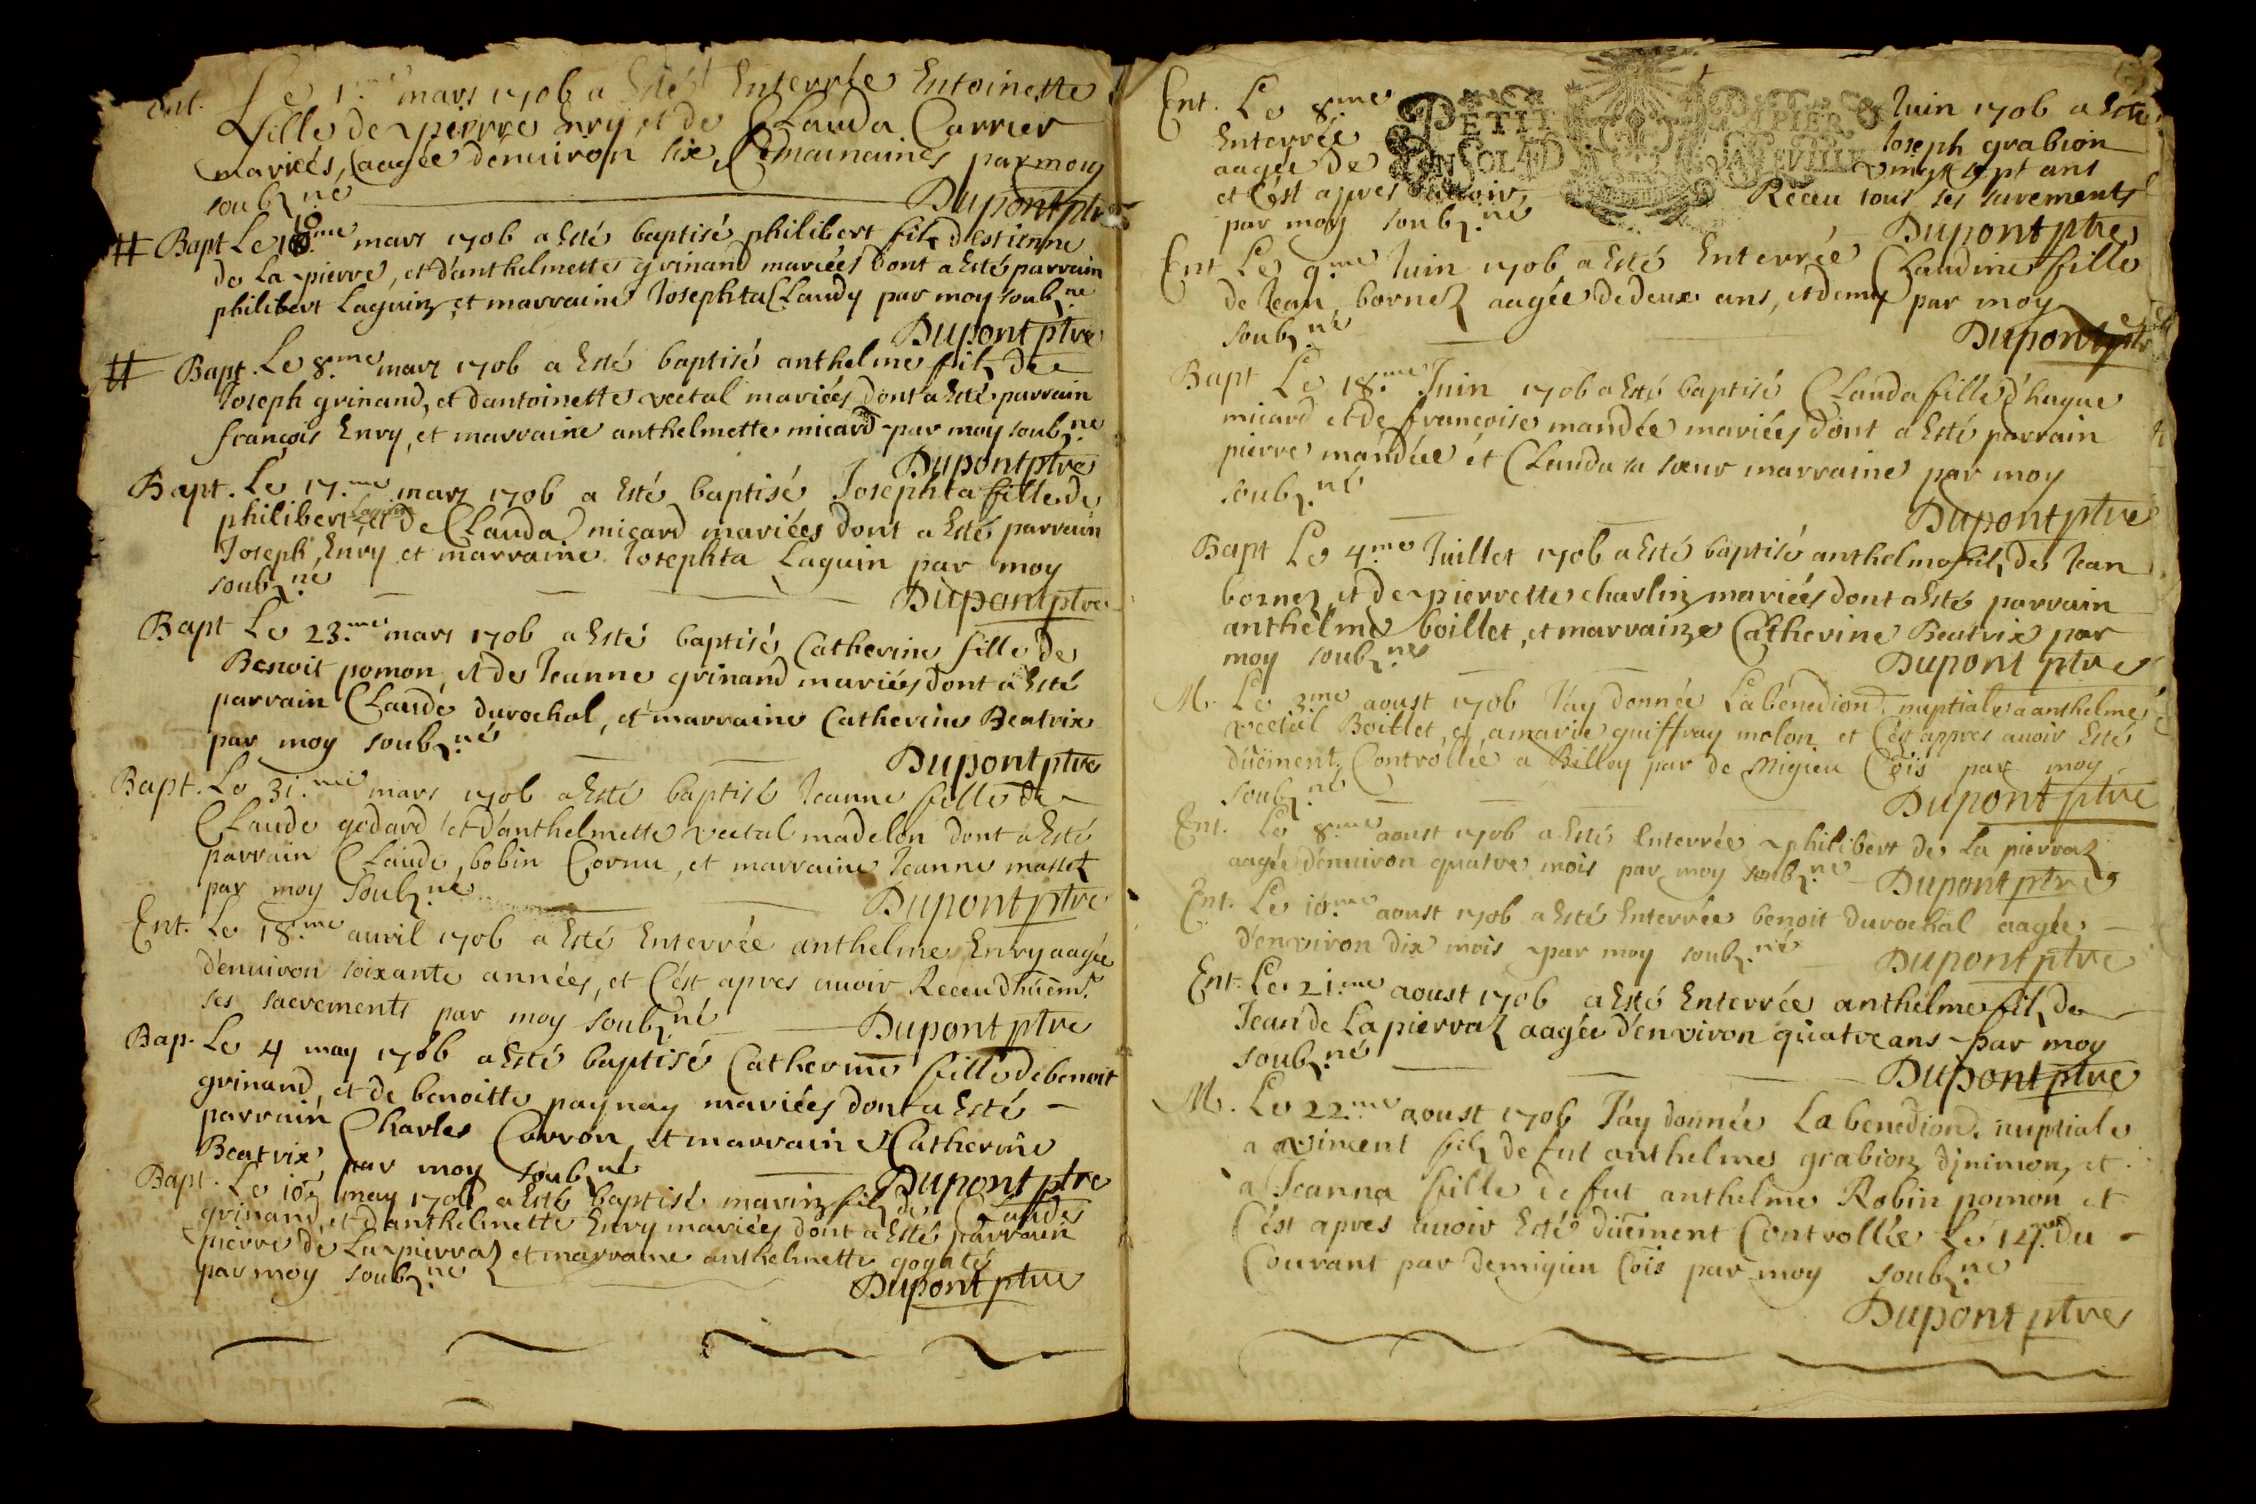 Ent. Le 1.me mars 1706 a Esté Enterrée Entoinette
fille de pierre Enry et de Clauda Carrier
mariées, aagée d'enuiron six semainaines par moy
soubz.né Dupont ptre
# Bapt Le me mars 1706 a Esté baptisé philibert filz d'estienne
de La pierre, et d'anthelmette grinand mariées dont a Esté parrain
philibert Laguin, et marraine Josephta Claudy par moy soubz.né
Dupont ptre
# Bapt. Le 8.me mars 1706 a Esté baptisé anthelme filz de
Joseph grinand, et d'antoinette veetal mariées dont a Esté parrain
françois Enry, et marraine anthelmette micard par moy soubz.né
Dupont ptre
Bapt. Le 17.me mars 1706 a Esté baptisé Josephta fille de
philibert Laguin et de Clauda micard mariées dont a Esté parrain
Joseph Enry et marraine Josephta Laguin par moy
soubz.né Dupont ptre
Bapt Le 23.me mars 1706 a Esté baptisé Catherine fille de
Benoit pomon, et de Jeanne grinand mariées dont a Esté
parrain Claude durochal, et marraine Catherine Beatrix
par moy soubz.né
Dupont ptre
Bapt. Le 31.me mars 1706 a Esté baptisé Jeanne fille de
Claude godard et d'anthelmette veetal madelon dont a Esté
parrain Claude bobin Cornu, et marraine Jeanne masset
par moy soubz.né Dupont ptre
Ent. Le 18.me auril 1706 a Esté Enterrée anthelme Enry aagée
d'enuiron soixante années, et C'est apres auoir Receu dhüem.t
ses sacrements par moy soubz.né
Dupont ptre
Bap. Le 4 may 1706 a Esté baptisé Catherine fille de benoit
grinand, et de benoitte paynay mariées dont a Esté
parrain Charles Carron, et marraine Catherine
Beatrix par moy soubz.né Dupont ptre
Bapt. Le 10 may 1706 a Esté baptisé marin filz de Claude
grinand, et d'anthelmette Enry mariées dont a Esté parrain
pierre de La pierraz et marraine anthelmette
par moy soubz.né
Dupont ptre
Ent. Le 8.me Juin 1706 a Esté
PETIT PAPIER
Enterrée Joseph grabion
CINQ SOL 4 D LA FEVILLE
aagée de vingt sept ans
et C'est apres auoir Receu tous ses sacrements
par moy soubz.né Dupont ptre
Ent Le 9.me Juin 1706 a Esté Enterrée Claudine fille
de Jean bornez aagée de deux ans, et demy par moy
soubz.né Dupont ptre
Bapt Le 18.me Juin 1706 a Esté baptisé Clauda fille d'hugue
micard et de françoise mandée mariées dont a Esté parrain
pierre mandée et Clauda sa soeur marraine par moy
soubz.né
Dupont ptre
Bapt Le 4.me Juillet 1706 a Esté baptisé anthelme filz de Jean
bornez et de pierrette charlin mariées dont a Esté parrain
anthelme boillet, et marraine Catherine Beatrix par
moy soubz.né Dupont ptre
M. Le 3.me aoust 1706 J'ay donnée La benediction nuptiale a anthelme
veetal Boillet, et a marie guiffray molon et C'est appres auoir Esté
düement Controllée a Belley par de Migieu Cois par moy
soubz.né Dupont ptre
Ent. Le 8.me aoust 1706 a Esté Enterrée philibert de La pierraz
aagée d'enuiron quatre mois par moy soubz.né Dupont ptre
Ent. Le 10.me aoust 1706 a Esté Enterrée benoit durochal aagée
d'environ dix mois par moy soubz.né Dupont ptre
Ent. Le 21.me aoust 1706 a Esté Enterrée anthelme filz de
Jean de La pierraz aagée d'environ quatre ans par moy
soubz.né
Dupont ptre
M. Le 22.me aoust 1706 J'ay donnée La benedion. nuptiale
a vincent filz de fut anthelme grabion et
a Jeanna fille de fut anthelme Robin pomon et
C'est apres auoir Esté düement Controllée Le 14.me du
Courant par demigieu Cois par moy soubz.né
Dupont ptre